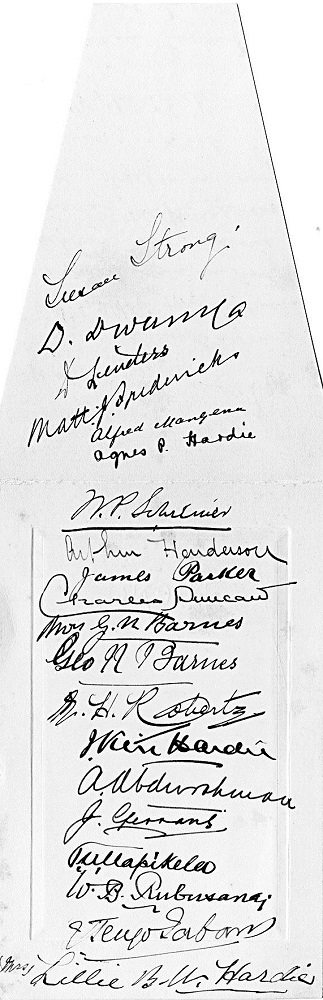 Susan Strong
D. Dwanya
D Lenders
Matt. J. Fredericks
Alfred Mangena
Agnes P. Hardie
W. P. Schreiner
Arthur Henderson
James Parker
Charles Duncan
Mrs G. N Barnes
Geo N Barnes
H. Robertz
J Keir Hardie
A. Abdurahman
J. Gerrans
W. B. Rubusana
J Tengo Jabavu
Mrs Lillie B. M. Hardie